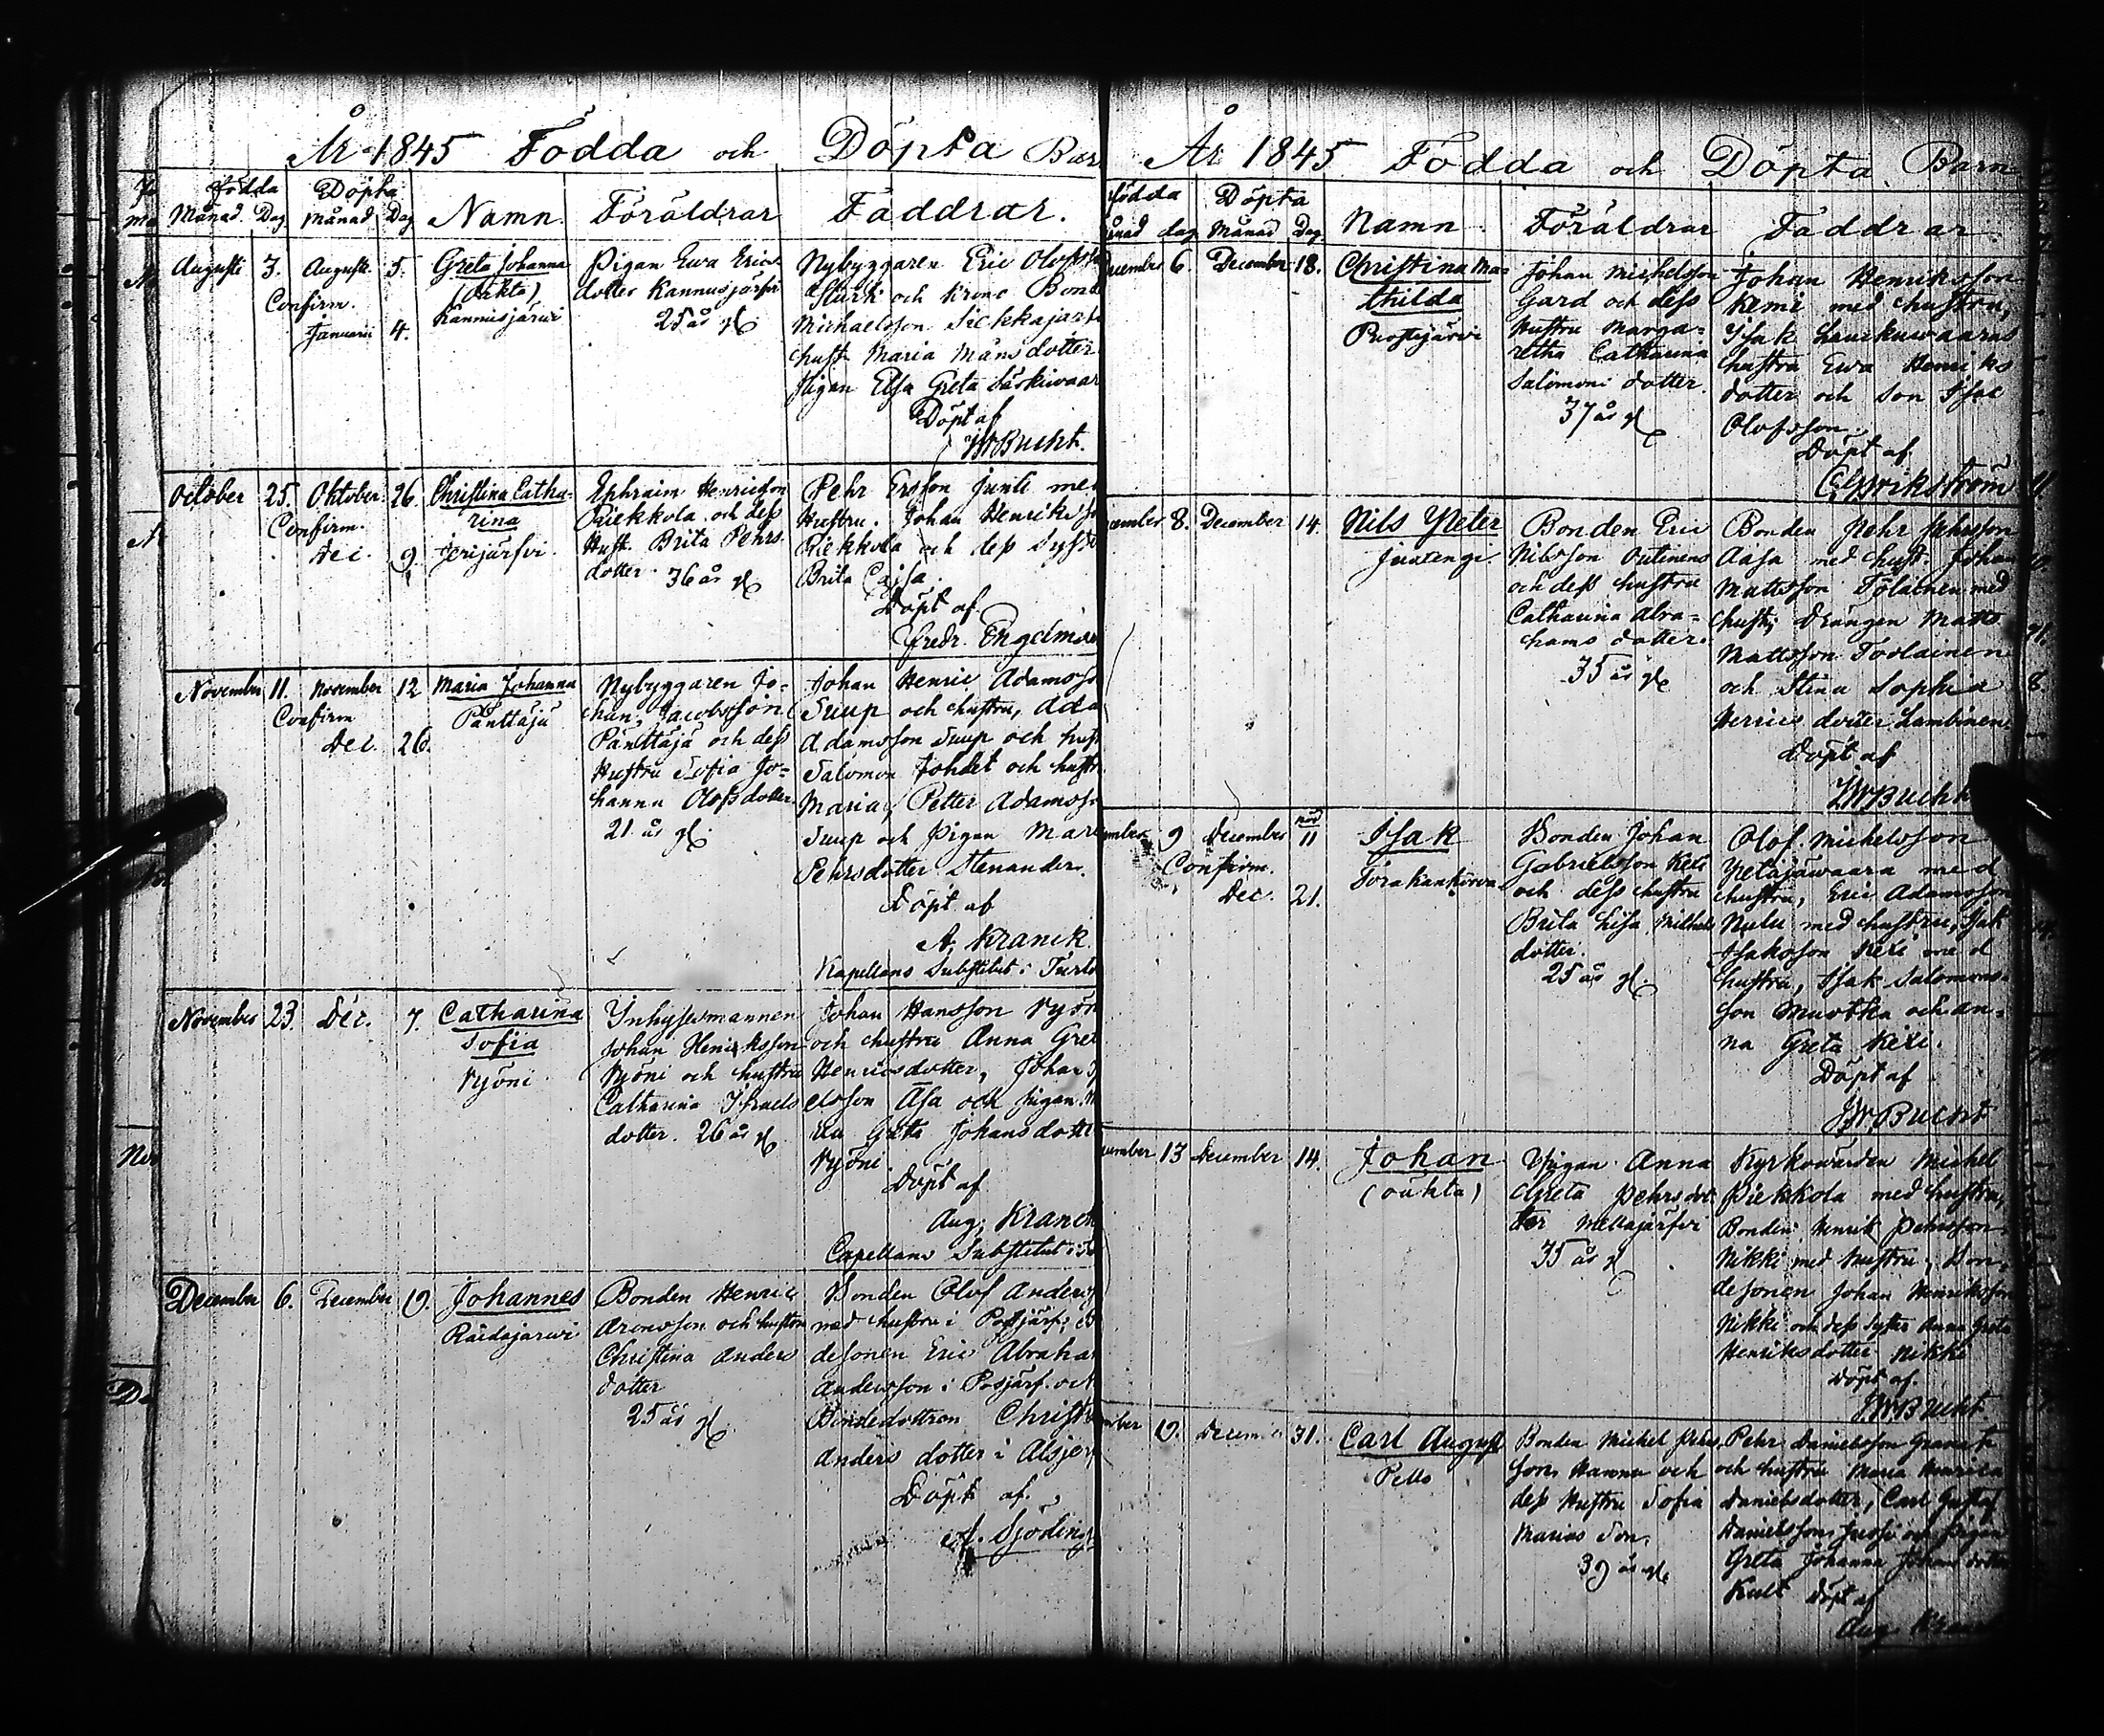 År 1845 Födda och Döpta Bar
Födda Döpta
Månad. Dag månad Dag Namn. Föräldrar Faddrar.
Augusti 3. Augusti 5. Greta Johanna
Confirm. (Oäkta)
Januari 4. Kannusjärwi
Pigan Ewa Erics
dotter Kannusjärfwi
25 år gl.
Nybyggaren Eric Olofss
Sturk och Krono Bond
Michaelsson
hust. Maria Månsdotter
Pigan Elsa Greta
Döpt af
JWBucht.
October 25. Oktober. 26. Christina Catha-
Confirm. rina
Dec. 9. Jerijärfvi
Ephraim Henricsson
Riekkola och dess
Hust. Brita Pehrs
dotter. 36 år gl
Pehr Ersson Junti med
Hustru. Johan Henriks
Riekkola och dess
Brita Cajsa.
Döpt af
Fredr. Engelm
November 11. November 12 Maria Johanna
Confirm Pänttäjä
Dec. 26.
Nybyggaren Jo-
han Jacobsson
Pänttäjä och dess
Hustru Sofia Jo-
hanna Olofsdotter
21 år gl.
Johan Henric Adamss
Suup och hustru, Ada
Adamsson Suup och hust
Salomon Fohdet och hustr
Maria, Petter Adamss
Suup och Pigan Mar
Pehrsdotter Stenander.
Döpt af
A. Kranck.
Kapellans Substitut i Turt
November 23. Dec. 7. Catharina
Sofia
Pyöni
Inhysesmannen
Johan Henriksson
Pyöni och hustru
Catharina Israels
dotter. 26 år gl
Johan Hansson Pyön
och hustru Anna Gret
Henricsdotter, Johan
elsson Asa och pigan
Greta Johansdotte
Pyöni
Döpt af
Aug. Kranck
Capellans Substitut i
December 6. December 19. Johannes
Räidajärwi
Bonden Henric
Aronsson och hustru
Christina Anders
dotter
25 år gl
Bonden Olof Anders
med hustru i Posjärf;
desonen Eric Abraha
Andersson i Posjärf. och
Bondedottren Christ
Anders dotter i
Döpt af
A. Sjöding
År 1845 Födda och Döpta Barn
Födda Döpta
ånad dag Månad Dag. Namn. Föräldrar Faddrar.
ecember 6. December 18. Christina Ma-
thilda
Johan Michelsson
Gard och dess
Hustru Marga-
retha Catharina
Salomons dotter.
37 år gl
Johan Henriksson
Kemi med hustru,
Isak
hustru Ewa Henriks
dotter och Son Isac
Olofsson.
Döpt af
C. G. Wikström
cember 8. December 14. Nils Peter
Juxengi.
Bonden Eric
Nilsson
och dess hustru
Catharina Abra-
hams dotter.
35 år gl
Bonden Pehr Johansson
Aasa med hust. Johan
Mattsson Tolainen med
hust; Drängen Matts
Mattsson Toolainen
och Stina Sophia
Henrics dotter Lambinen.
Döpt af
JWBucht
ember 9 December nöd 11 Isak
Confirm.
Dec. 21.
Bonden Johan
Gabrielsson Kexi
och dess hustru
Brita Lisa
dotter.
25 år gl.
Olof Michelsson
Petäjäwaara med
hustru, Eric Adamsson
Nulu med hustru, Isak
Isaksson Kexi med
hustru, Isak Salomons-
son Muotka och An-
na Greta Kexi.
Döpt af
JWBucht
cember 13 December 14. Johan
(oäkta)
Pigan Anna
Greta Pehrsdot
ter Mellajärfvi
35 år gl
Kyrkowärden Michel
Piekkola med hustru,
Bonden Henrik Pehrsson
Nikki med Hustru, Bon-
desonen Johan Henriksson
Nikki och dess syster Anna Greta
Henriksdotter Nikki
Döpt af.
JWBucht.
mber 19. Decem 31. Carl August
Pello
Bonden Michel Pehrs
son Hannu och
dess Hustru Sofia
Marias Son.
39 år gl
Pehr Danielsson Granat
och hustru Maria Henrica
Danielsdotter, Carl Gustaf
Danielsson Jussi och Pigan
Greta Johanna Johans dotter
Kult Döpt af
Aug. Kranck